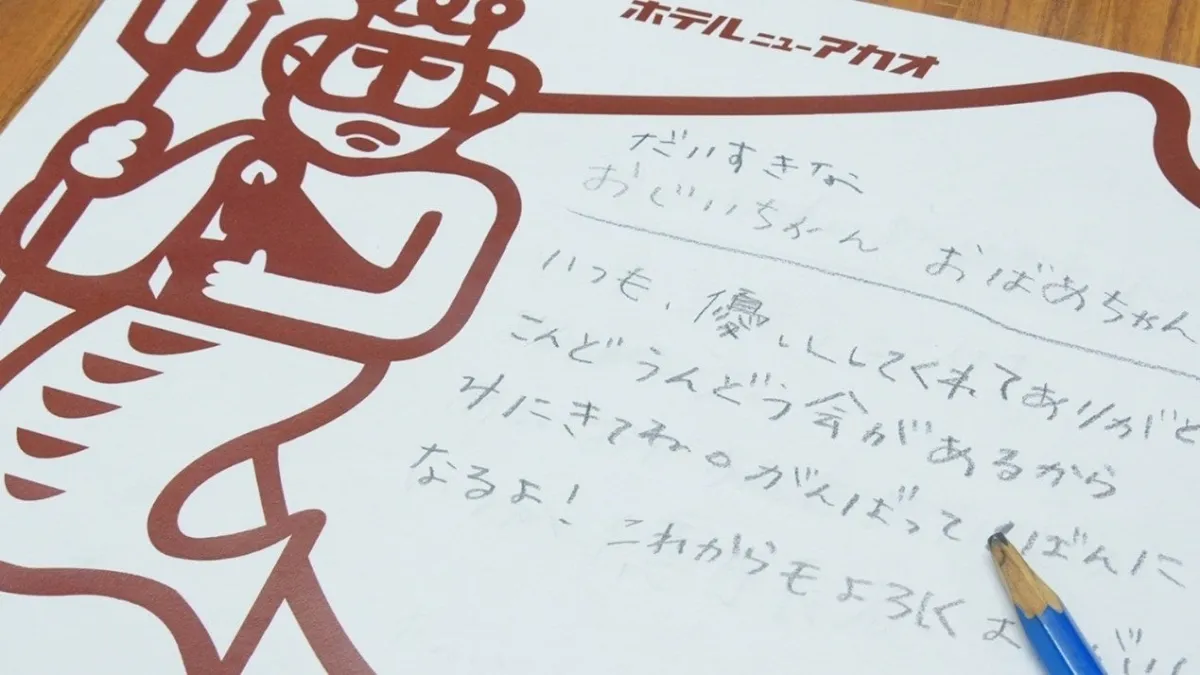 ホテルニューアカオ
だいすきな
おじいちゃん おばあちゃん
いつも、優しくしてくれてありがと
こんどうんどう会があるから
みにきてね。がんばって ばんに
なるよ! これからもよろしく